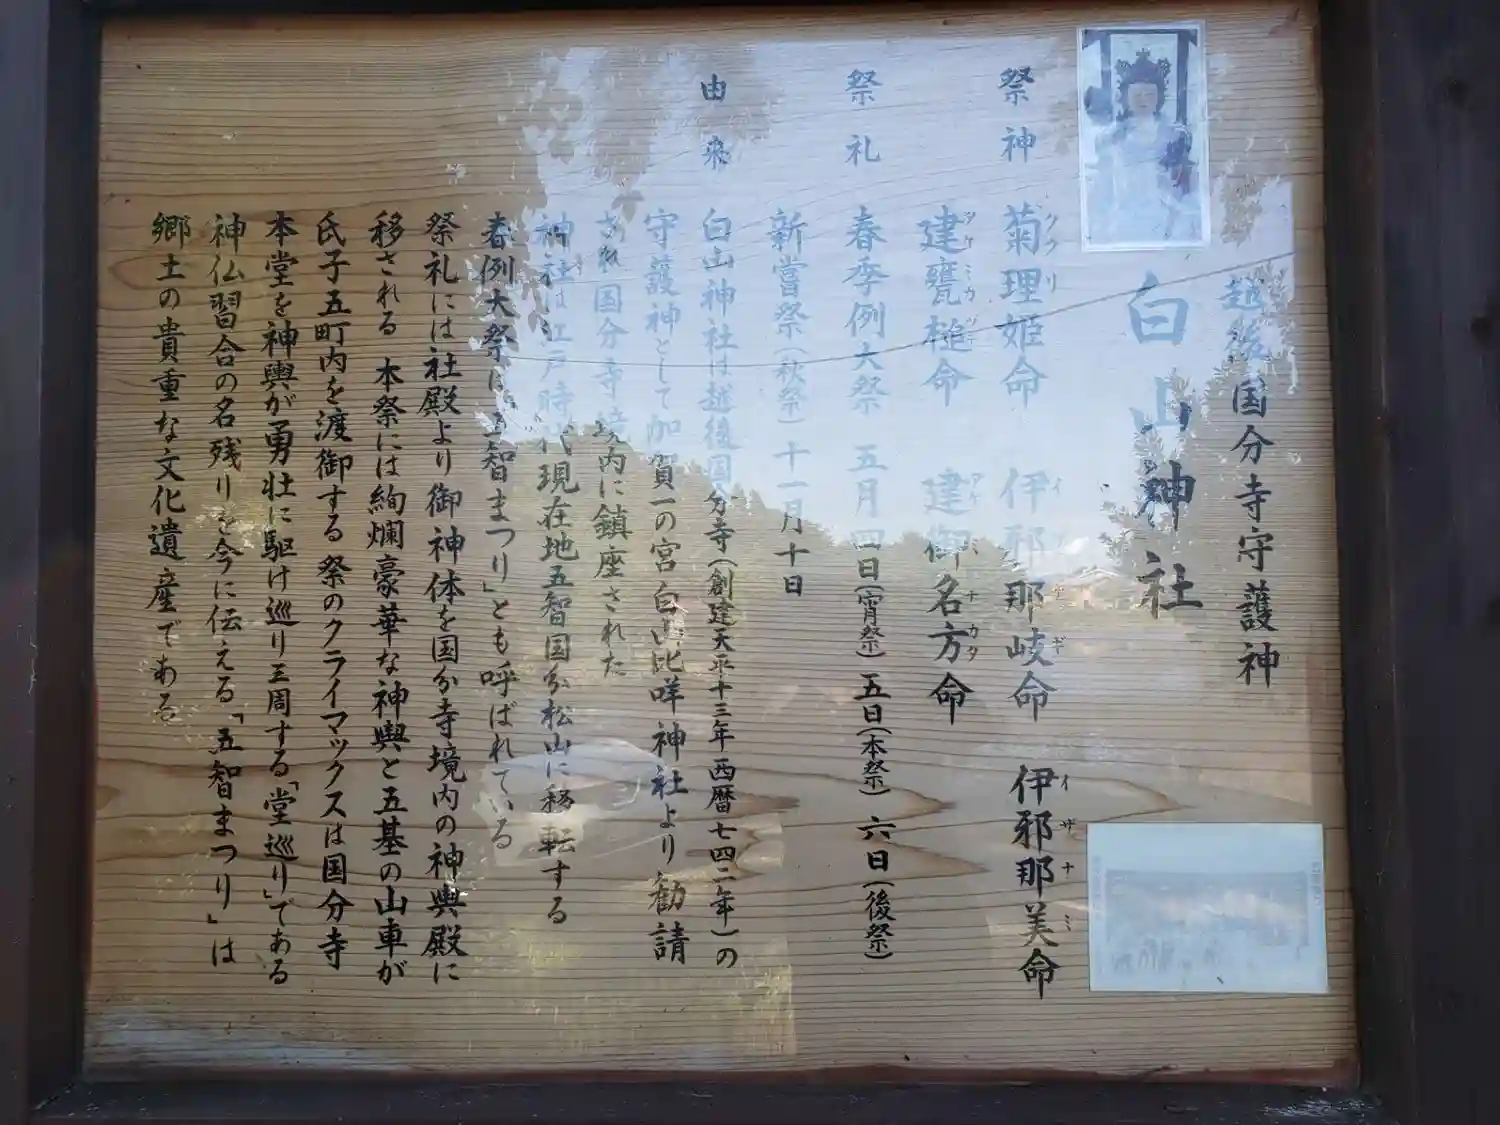 越後国分寺守護神
白山神社
祭神 菊理姫命 伊邪那岐命 伊邪那美命
ククリ イザナギ イザナミ
建甕槌命 建御名方命
タケミカヅチ タケミナカタ
祭礼 春季例大祭 五月四日(宵祭)五日(本祭)六日(後祭)
新嘗祭(秋祭)十一月十日
由来 白山神社は越後国分寺(創建天平十三年西暦七四二年)の
守護神として加賀一の宮白山比咩神社より勧請
され国分寺境内に鎮座された
神社は江戸時代現在地五智国分松山に移転する
春例大祭は「五智まつり」とも呼ばれている
祭礼には社殿より御神体を国分寺境内の神輿殿に
移される 本祭には絢爛豪華な神輿と五基の山車が
氏子五町内を渡御する 祭のクライマックスは国分寺
本堂を神輿が勇壮に駆け巡り三周する「堂巡り」である
神仏習合の名残りを今に伝える「五智まつり」は
郷土の貴重な文化遺産である